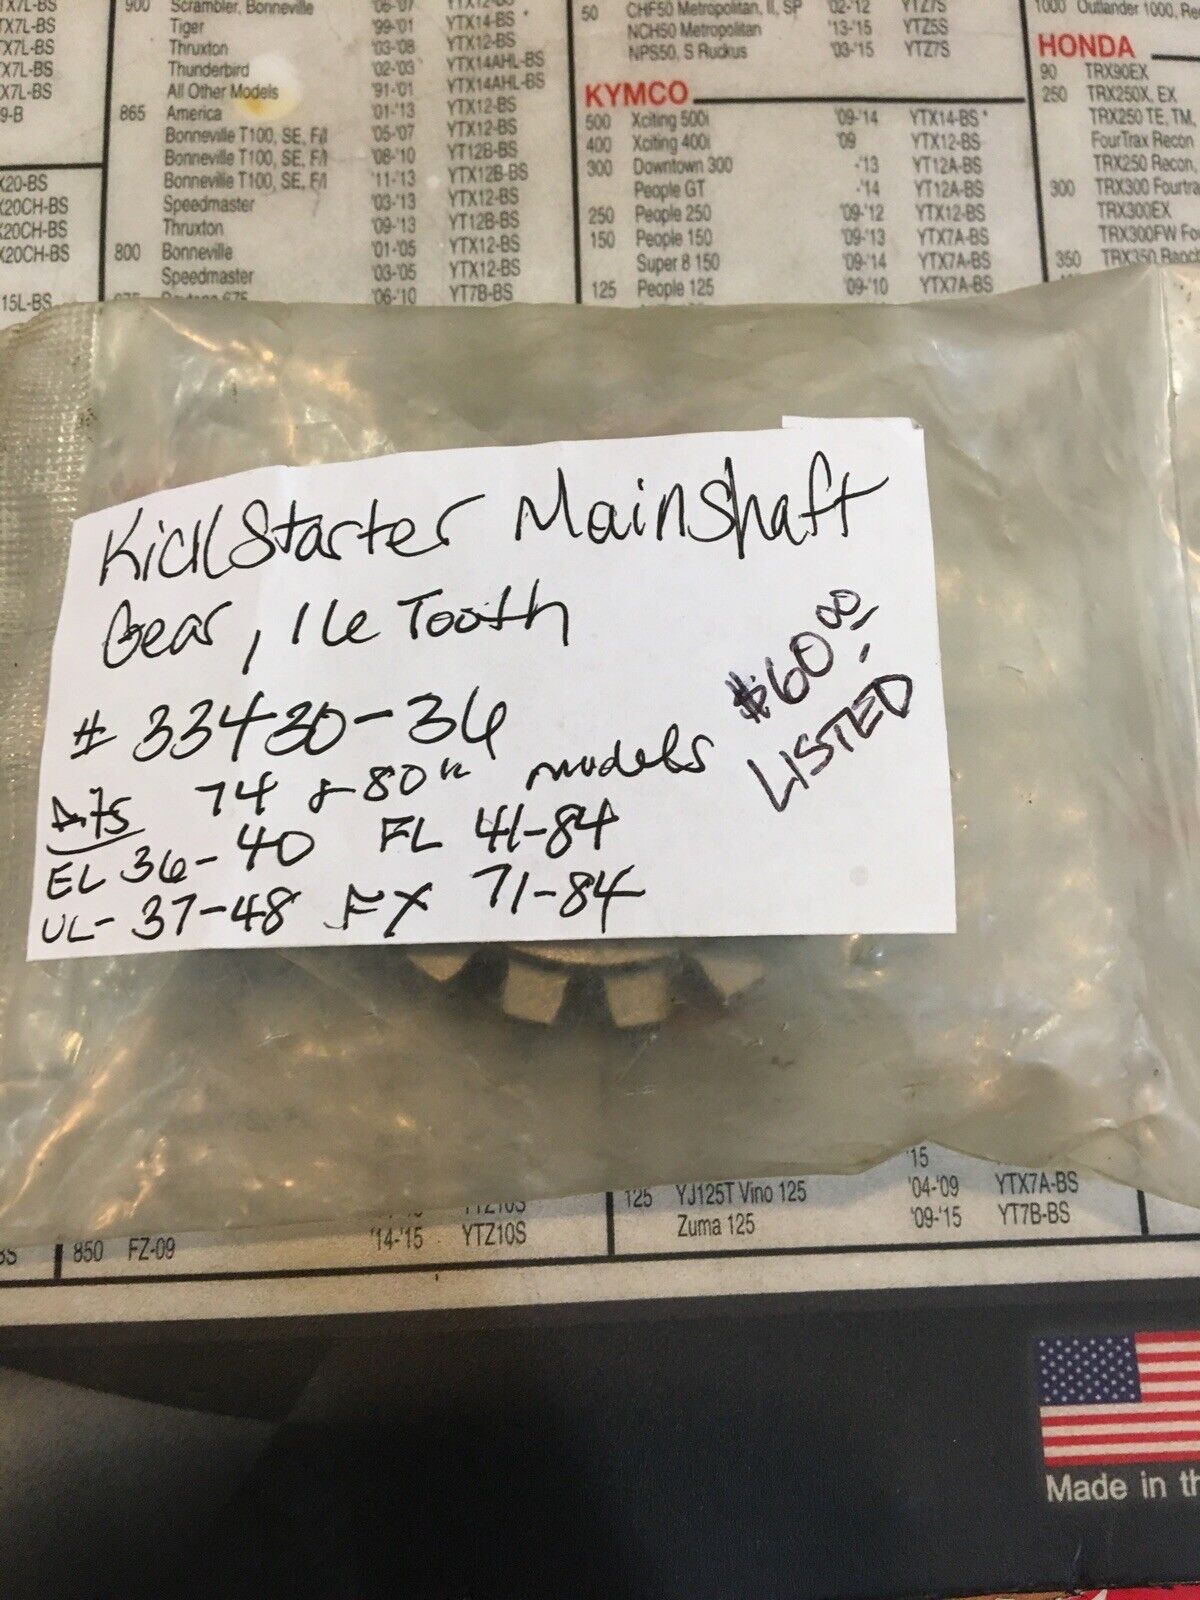 TX7L-BS
TX7L-BS
TX7L-BS
TX7L-BS
9-B
X20-BS
X20CH-BS
X20CH-BS
X20CH-BS
15L-BS
900 Scrambler, Bonneville '06-'07 YTX12-BS
Tiger '99-'01 YTX14-BS
Thruxton '03-'08 YTX12-BS
Thunderbird '02-'03 YTX14AHL-BS
All Other Models '91-'01 YTX14AHL-BS
865 America '01-'13 YTX12-BS
Bonneville T100, SE, F/I '05-'07 YTX12-BS
Bonneville T100, SE, F/I '08-'10 YT12B-BS
Bonneville T100, SE, F/I '11-'13 YTX12B-BS
Speedmaster '03-'13 YTX12-BS
Thruxton '09-'13 YT12B-BS
800 Bonneville '01-'05 YTX12-BS
Speedmaster '03-'05 YTX12-BS
675 Daytona 675 '06-'10 YT7B-BS
50 CHF50 Metropolitan, II, SP '02-'12 YTZ7S
NCH50 Metropolitan '13-'15 YTZ5S
NPS50, S Ruckus '03-'15 YTZ7S
KYMCO
500 Xciting 500i '09-'14 YTX14-BS*
400 Xciting 400i '09 YTX12-BS
300 Downtown 300 -'13 YT12A-BS
People GT -'14 YT12A-BS
250 People 250 '09-'12 YTX12-BS
150 People 150 '09-'13 YTX7A-BS
Super 8 150 '09-'14 YTX7A-BS
125 People 125 '09-'10 YTX7A-BS
1000 Outlander 1000, Re
HONDA
90 TRX90EX
250 TRX250X, EX
TRX250 TE, TM,
FourTrax Recon
TRX250 Recon,
300 TRX300 Fourtra
TRX300EX
TRX300FW Fou
350 TRX350 Ranch
KickStarter Mainshaft
Gear, 16 Tooth
# 33430-36
Fits 74 & 80" models
EL 36-40 FL 41-84
UL- 37-48 FX 71-84
$60.00
LISTED
YTZ10S
'14-'15 YTZ10S
BS
850 FZ-09
'15
125 YJ125T Vino 125 '04-'09 YTX7A-BS
Zuma 125 '09-'15 YT7B-BS
Made in th